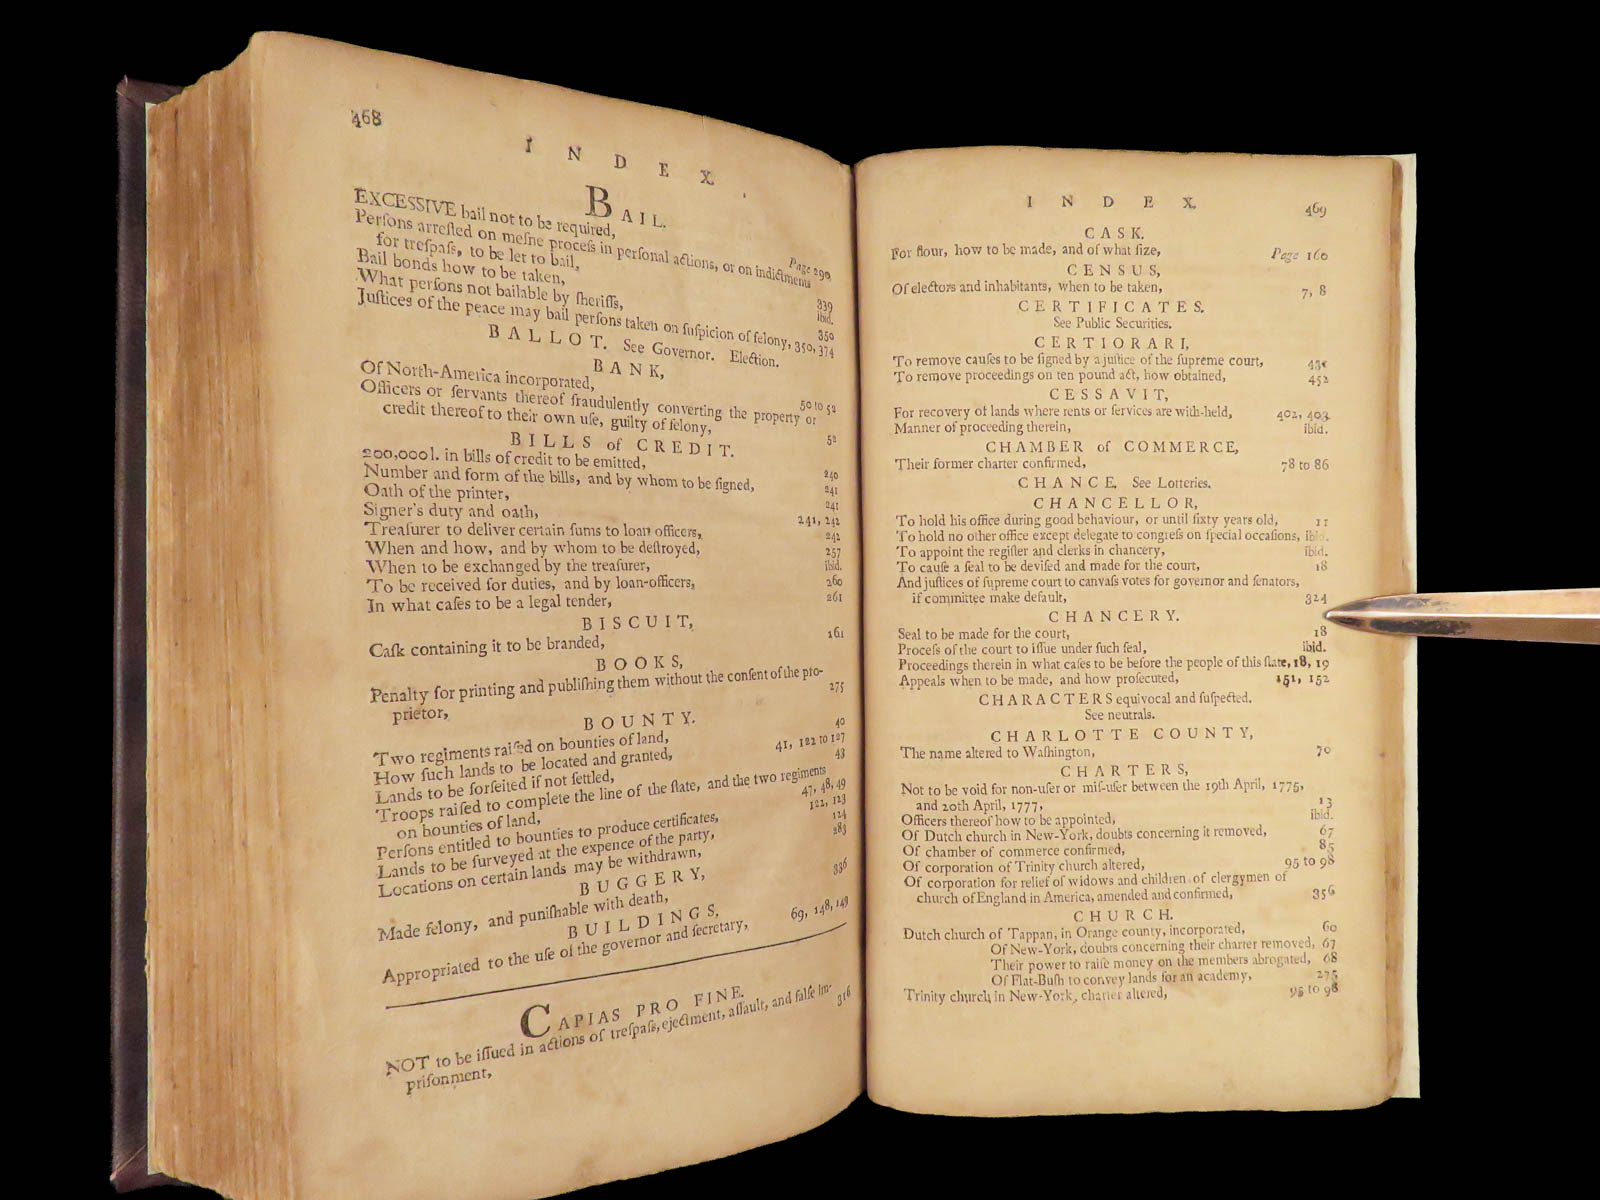 468
INDEX.
BAIL.
EXCESSIVE bail not to be required, Page 290
Perſons arreſted on meſne proceſs in perſonal actions, or on indictments
for treſpaſs, to be let to bail, 339
Bail bonds how to be taken, ibid.
What perſons not bailable by ſheriffs, 350
Juſtices of the peace may bail perſons taken on ſuſpicion of felony, 350, 374
BALLOT. See Governor. Election.
BANK,
Of North-America incorporated, 50 to 52
Officers or ſervants thereof fraudulently converting the property or
credit thereof to their own uſe, guilty of felony, 52
BILLS of CREDIT.
200,000l. in bills of credit to be emitted, 240
Number and form of the bills, and by whom to be ſigned, 241
Oath of the printer, 241
Signer's duty and oath, 241, 242
Treaſurer to deliver certain ſums to loan officers, 242
When and how, and by whom to be deſtroyed, 257
When to be exchanged by the treaſurer, ibid.
To be received for duties, and by loan-officers, 260
In what caſes to be a legal tender, 261
BISCUIT,
Caſk containing it to be branded, 161
BOOKS,
Penalty for printing and publiſhing them without the conſent of the pro-
prietor, 275
BOUNTY.
Two regiments raiſed on bounties of land, 40
How ſuch lands to be located and granted, 41, 122 to 127
Lands to be forfeited if not ſettled, 43
Troops raiſed to complete the line of the ſtate, and the two regiments
on bounties of land, 47, 48, 49
Perſons entitled to bounties to produce certificates, 122, 123
Lands to be ſurveyed at the expence of the party, 124
Locations on certain lands may be withdrawn, 283
BUGGERY,
Made felony, and puniſhable with death, 336
BUILDINGS,
Appropriated to the uſe of the governor and ſecretary, 69, 148, 149
CAPIAS PRO FINE.
NOT to be iſſued in actions of treſpaſs, ejectment, aſſault, and falſe im-
priſonment, 316
INDEX. 469
CASK.
For flour, how to be made, and of what ſize, Page 160
CENSUS,
Of electors and inhabitants, when to be taken, 7, 8
CERTIFICATES.
See Public Securities.
CERTIORARI,
To remove cauſes to be ſigned by a juſtice of the ſupreme court,
To remove proceedings on ten pound act, how obtained, 452
CESSAVIT,
For recovery of lands where rents or ſervices are with-held, 402, 403
Manner of proceeding therein, ibid.
CHAMBER of COMMERCE,
Their former charter confirmed, 78 to 86
CHANCE. See Lotteries.
CHANCELLOR,
To hold his office during good behaviour, or until ſixty years old, 11
To hold no other office except delegate to congreſs on ſpecial occaſions, ibid.
To appoint the regiſter and clerks in chancery, ibid.
To cauſe a ſeal to be deviſed and made for the court, 18
And juſtices of ſupreme court to canvaſs votes for governor and ſenators,
if committee make default, 324
CHANCERY.
Seal to be made for the court, 18
Proceſs of the court to iſſue under ſuch ſeal, ibid.
Proceedings therein in what caſes to be before the people of this ſtate, 18, 19
Appeals when to be made, and how proſecuted, 151, 152
CHARACTERS equivocal and ſuſpected.
See neutrals.
CHARLOTTE COUNTY,
The name altered to Waſhington, 70
CHARTERS,
Not to be void for non-uſer or miſ-uſer between the 19th April, 1775,
and 20th April, 1777, 13
Officers thereof how to be appointed, ibid.
Of Dutch church in New-York, doubts concerning it removed, 67
Of chamber of commerce confirmed, 85
Of corporation of Trinity church altered, 95 to 98
Of corporation for relief of widows and children of clergymen of
church of England in America, amended and confirmed, 356
CHURCH.
Dutch church of Tappan, in Orange county, incorporated, 60
Of New-York, doubts concerning their charter removed, 67
Their power to raiſe money on the members abrogated, 68
Of Flat-Buſh to convey lands for an academy, 275
Trinity church in New-York, charter altered, 95 to 98